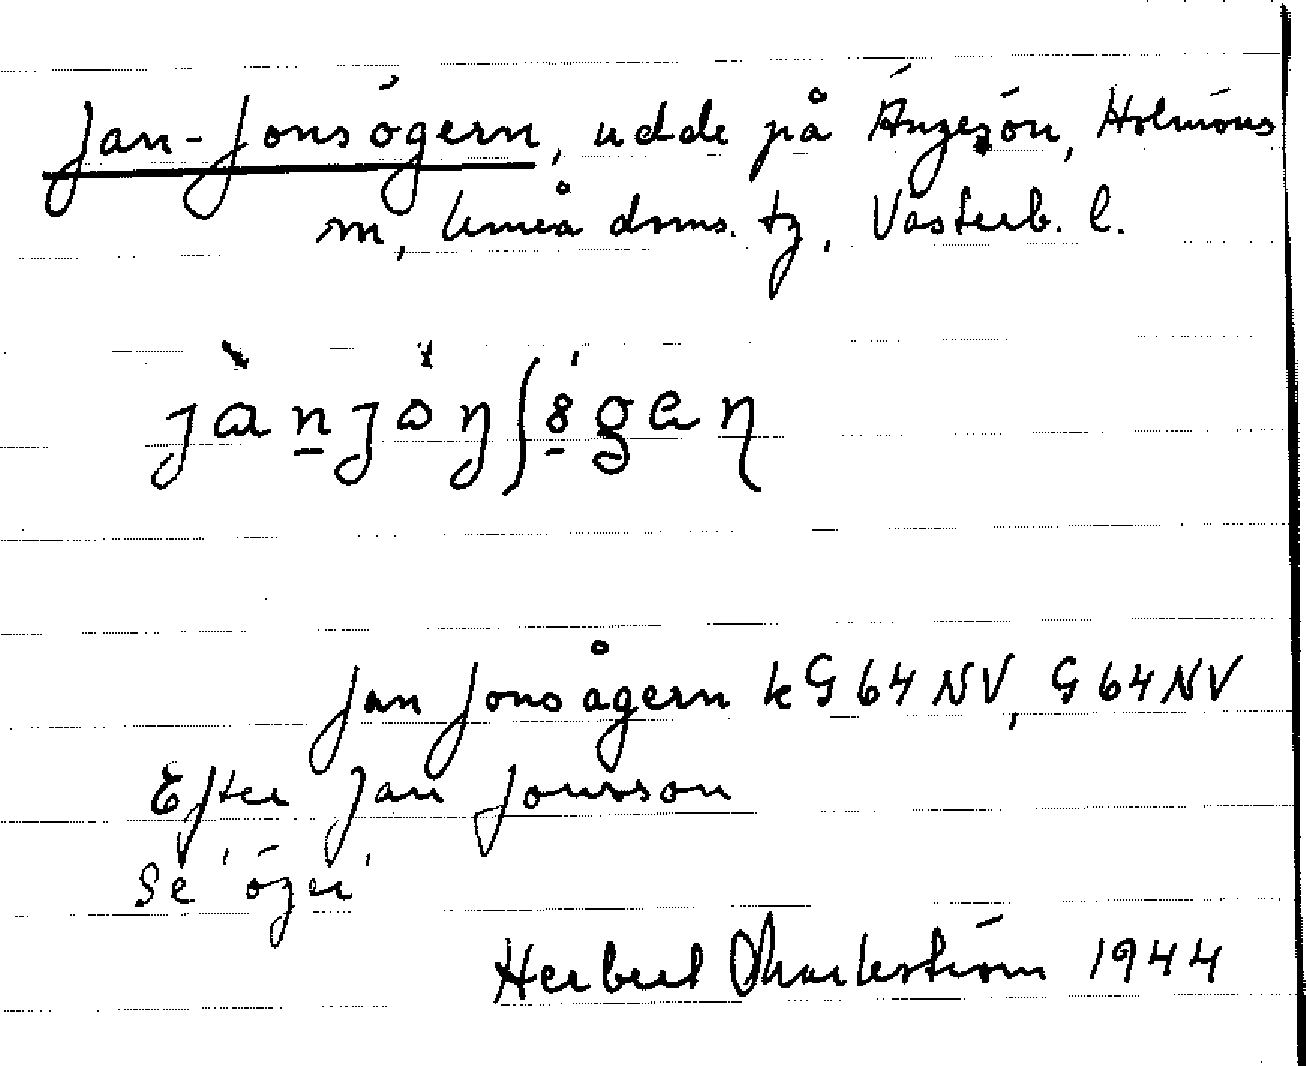 Jan-Jonsögern, udde på Ängesön, Holmöns
m, Umeå doms. tg, Västerb. l.
Jan Jonsågern k G 64 NV, G 64 NV
Efter Jan Jonsson
Se 'öger'
Herbert 1944